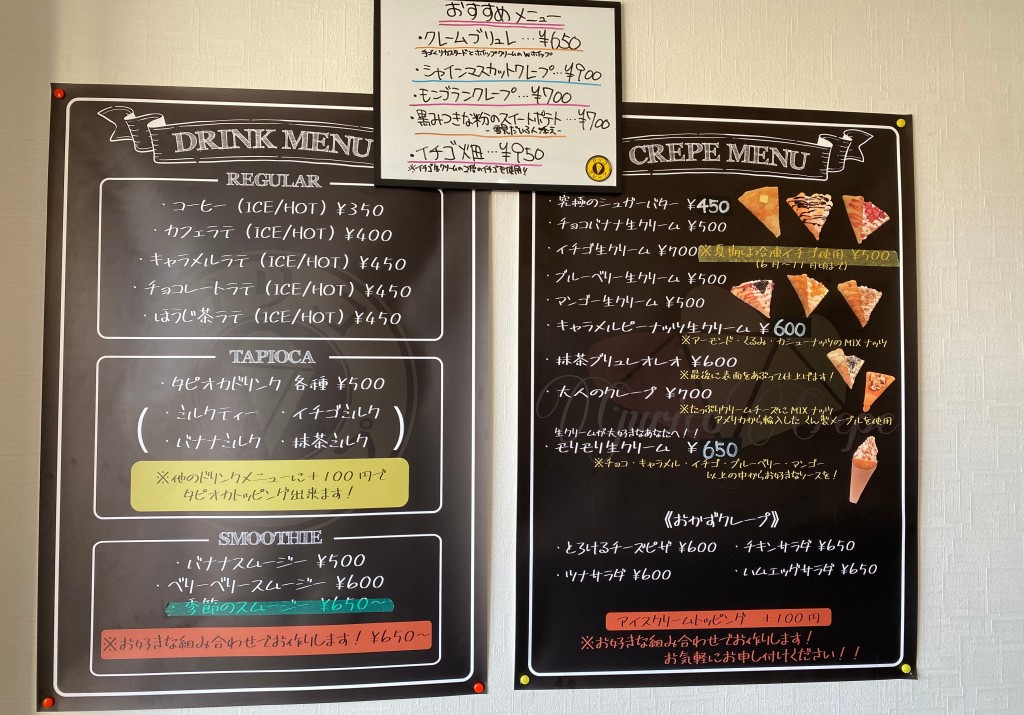 おすすめメニュー
・クレームブリュレ…¥650
手づくりカスタードとホイップクリームのWホイップ
・シャインマスカットクレープ…¥900
・モンブランクレープ…¥700
・黒みつきな粉のスイートポテト…¥700
・イチゴ畑…¥950
※イチゴ生クリームの2倍のイチゴを使用!!
DRINK MENU
REGULAR
・コーヒー (ICE/HOT) ¥350
・カフェラテ (ICE/HOT) ¥400
・キャラメルラテ (ICE/HOT) ¥450
・チョコレートラテ (ICE/HOT) ¥450
・ほうじ茶ラテ (ICE/HOT) ¥450
TAPIOCA
・タピオカドリンク 各種 ¥500
・ミルクティー ・イチゴミルク
・バナナミルク ・抹茶ミルク
※他のドリンクメニューに+100円で
タピオカトッピング出来ます!
SMOOTHIE
・バナナスムージー ¥500
・ベリーベリースムージー ¥600
・季節のスムージー ¥650~
※お好きな組み合わせでお作りします! ¥650~
CREPE MENU
・究極のシュガーバター ¥450
・チョコバナナ生クリーム ¥500
・イチゴ生クリーム ¥700 ※夏期は冷凍イチゴ使用 ¥500
(6月~11月頃まで)
・ブルーベリー生クリーム ¥500
・マンゴー生クリーム ¥500
・キャラメルピーナッツ生クリーム ¥600
※アーモンド・くるみ・カシューナッツのMIXナッツ
・抹茶ブリュレオレオ ¥600
※最後に表面をあぶって仕上げます!
・大人のクレープ ¥700
※たっぷりクリームチーズにMIXナッツ
アメリカから輸入したくん製メープルを使用
生クリームが大好きなあなたへ!!
・モリモリ生クリーム ¥650
※チョコ・キャラメル・イチゴ・ブルーベリー・マンゴー
以上の中からお好きなソースを!
《おかずクレープ》
・とろけるチーズピザ ¥600 ・チキンサラダ ¥650
・ツナサラダ ¥600 ・ハムエッグサラダ ¥650
アイスクリームトッピング +100円
※お好きな組み合わせでお作りします!
お気軽にお申し付けください!!